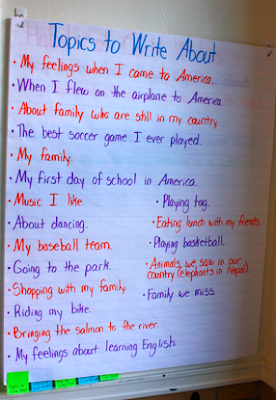 Topics to Write About
• My feelings when I came to America.
• When I flew on the airplane to America.
• About family who are still in my country
• The best soccer game I ever played.
• My family.
• My first day of school in America.
• Music I like.
• About dancing.
• My baseball team.
• Going to the park.
• Shopping with my family.
• Riding my bike.
• Bringing the salmon to the river.
• My feelings about learning English.
• Playing tag.
• Eating lunch with my friends.
• Playing basketball.
• Animals we saw in our
country (elephants in Nepal).
• Family we miss.